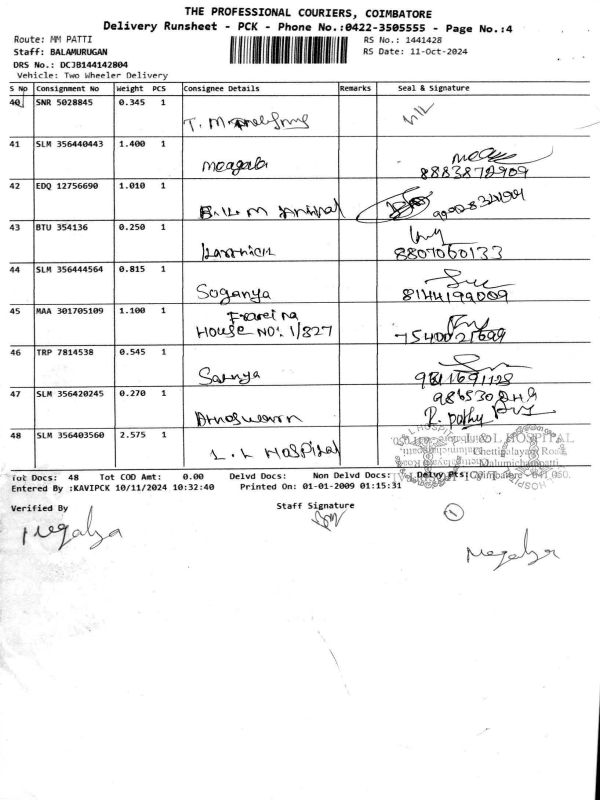 THE PROFESSIONAL COURIERS, COIMBATORE
Delivery Runsheet - PCK - Phone No.:0422-3505555 - Page No.:4
Route: MM PATTI
RS No.: 1441428
Staff: BALAMURUGAN
RS Date: 11-Oct-2024
DRS No.: DCJB144142804
Vehicle: Two Wheeler Delivery
S No Consignment No Weight PCS Consignee Details Remarks Seal & Signature
40 SNR 5028845 0.345 1
41 SLM 356440443 1.400 1
8883872909
42 EDQ 12756690 1.010 1
43 BTU 354136 0.250 1
8807060133
44 SLM 356444564 0.815 1 Soganya 8144199009
45 MAA 301705109 1.100 1
House No: 1/827 7540021699
46 TRP 7814538 0.545 1 Saranya
47 SLM 356420245 0.270 1
R. pathy
48 SLM 356403560 2.575 1 L.L HOSPITAL
HOSPITAL
Chettipalayam Road
Malumichampatti
Coimbatore - 641 050.
Tot Docs: 48 Tot COD Amt: 0.00 Delvd Docs: Non Delvd Docs: Delvy Pts:
Entered By :KAVIPCK 10/11/2024 10:32:40 Printed On: 01-01-2009 01:15:31
Verified By Staff Signature
1
Megalya
Megalya